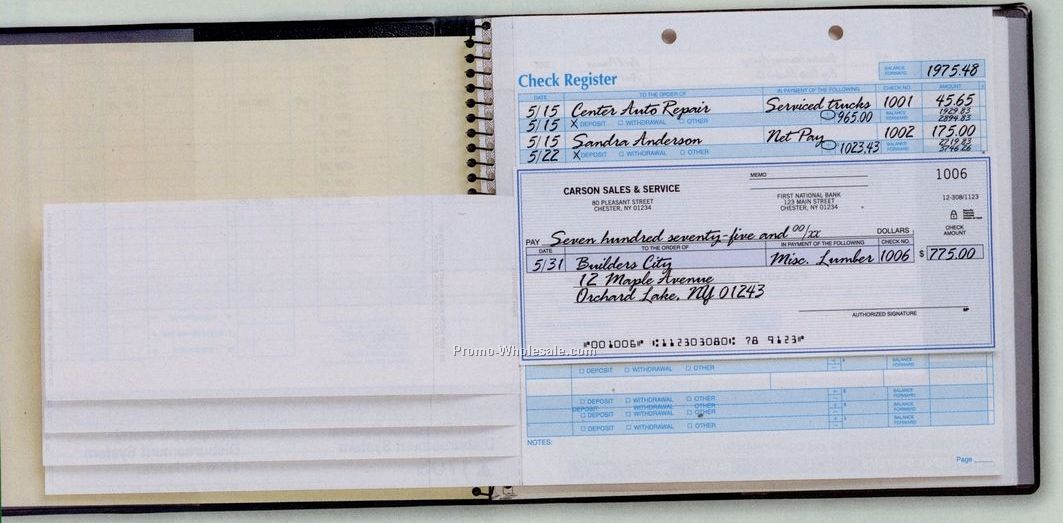 Check Register
BALANCE FORWARD 1975.48
DATE TO THE ORDER OF IN PAYMENT OF THE FOLLOWING CHECK NO. AMOUNT
5/15 Center Auto Repair Serviced trucks 1001 45.65
1929 83
5/15 X DEPOSIT □ WITHDRAWAL □ OTHER 965.00 BALANCE FORWARD 2894.83
5/15 Sandra Anderson Net Pay 1002 175.00
2719 83
5/22 X DEPOSIT □ WITHDRAWAL □ OTHER 1023.43 BALANCE FORWARD 3746 26
MEMO 1006
CARSON SALES & SERVICE
80 PLEASANT STREET
CHESTER, NY 01234
FIRST NATIONAL BANK
123 MAIN STREET
CHESTER, NY 01234
12-308/1123
CHECK AMOUNT
PAY Seven hundred seventy-five and 00/xx DOLLARS
DATE TO THE ORDER OF IN PAYMENT OF THE FOLLOWING CHECK NO.
5/31 Builders City Misc. Lumber 1006 $ 775.00
12 Maple Avenue
Orchard Lake, NY 01243
AUTHORIZED SIGNATURE
⑈001006⑈ ⑆112303080⑆ 78 9123⑈
Promo-Wholesale.com
□ DEPOSIT □ WITHDRAWAL □ OTHER BALANCE FORWARD
□ DEPOSIT □ WITHDRAWAL □ OTHER BALANCE FORWARD
DEPOSIT WITHDRAWAL OTHER
□ DEPOSIT □ WITHDRAWAL □ OTHER BALANCE FORWARD
□ DEPOSIT □ WITHDRAWAL □ OTHER BALANCE FORWARD
NOTES:
Page